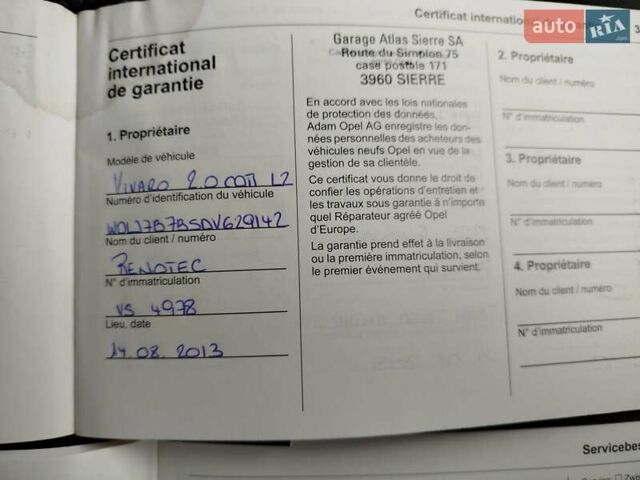 Certificat international
3
auto RIA.com
Certificat
international
de garantie
1. Propriétaire
Modèle de véhicule
VIVARO 2.0 CDTI L2
Numéro d'identification du véhicule
W0LJ7B7BSDV629142
Nom du client / numéro
RENOTEC
N° d'immatriculation
VS 4978
Lieu, date
14.08.2013
Garage Atlas Sierre SA
Route du Simplon 75
case postale 171
3960 SIERRE
En accord avec les lois nationales
de protection des données,
Adam Opel AG enregistre les don-
nées personnelles des acheteurs des
véhicules neufs Opel en vue de la
gestion de sa clientèle.
Ce certificat vous donne le droit de
confier les opérations d'entretien et
les travaux sous garantie à n'importe
quel Réparateur agréé Opel
d'Europe.
La garantie prend effet à la livraison
ou la première immatriculation, selon
le premier événement qui survient.
2. Propriétaire
Nom du client / numéro
N° d'immatriculation
3. Propriétaire
Nom du client / numéro
N° d'immatriculation
4. Propriétaire
Nom du client / numéro
N° d'immatriculation
Servicebes